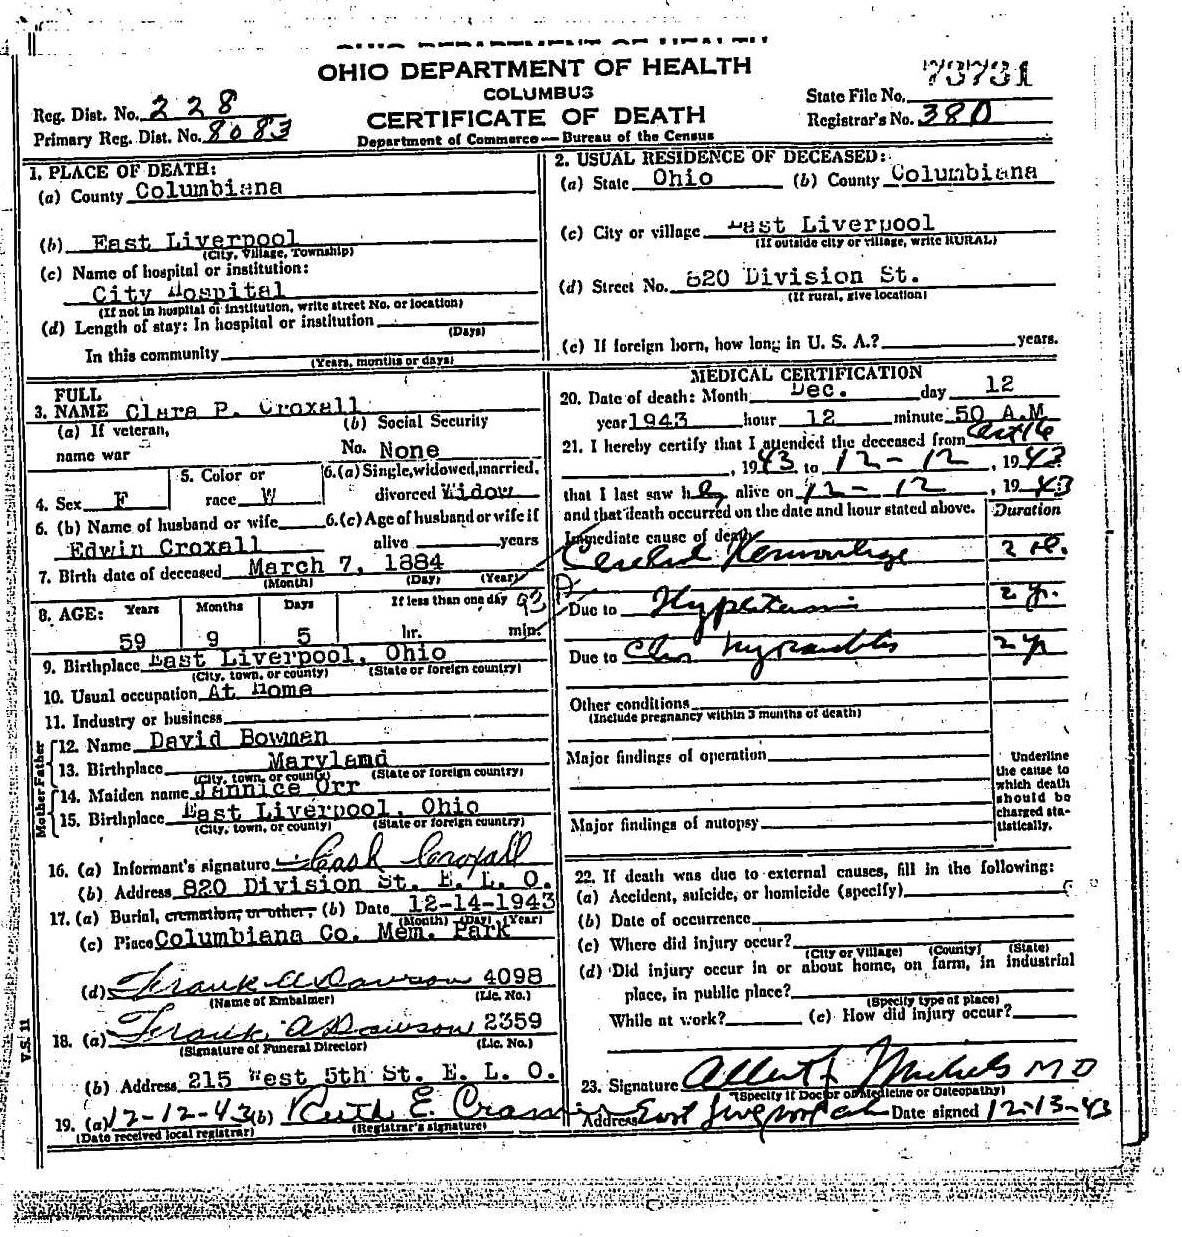 OHIO DEPARTMENT OF HEALTH
OHIO DEPARTMENT OF HEALTH
COLUMBUS
CERTIFICATE OF DEATH
Department of Commerce—Bureau of the Census
Reg. Dist. No. 228
Primary Reg. Dist. No. 8083
73731
State File No.
Registrar's No. 380
1. PLACE OF DEATH:
(a) County Columbiana
(b) East Liverpool
(City, Village, Township)
(c) Name of hospital or institution:
City Hospital
(If not in hospital or institution, write street No. or location)
(d) Length of stay: In hospital or institution
(Days)
In this community
(Years, months or days)
2. USUAL RESIDENCE OF DECEASED:
(a) State Ohio (b) County Columbiana
(c) City or village East Liverpool
(If outside city or village, write RURAL)
(d) Street No. 820 Division St.
(If rural, give location)
(e) If foreign born, how long in U. S. A.? years.
FULL
3. NAME Clara P. Croxall
(a) If veteran, (b) Social Security
name war No. None
4. Sex F 5. Color or race W 6. (a) Single, widowed, married, divorced Widow
6. (b) Name of husband or wife 6. (c) Age of husband or wife if
Edwin Croxall alive years
7. Birth date of deceased March 7, 1884
(Month) (Day) (Year)
8. AGE: Years Months Days If less than one day
59 9 5 hr. min.
93
9. Birthplace East Liverpool, Ohio
(City, town, or county) (State or foreign country)
10. Usual occupation At Home
11. Industry or business
Father
12. Name David Bowman
13. Birthplace Maryland
(City, town, or county) (State or foreign country)
Mother
14. Maiden name Jannice Orr
15. Birthplace East Liverpool, Ohio
(City, town, or county) (State or foreign country)
16. (a) Informant's signature Cash Croxall
(b) Address 820 Division St. E. L. O.
17. (a) Burial, cremation, or other, (b) Date 12-14-1943
(Month) (Day) (Year)
(c) Place Columbiana Co. Mem. Park
(d) Frank A Dawson 4098
(Name of Embalmer) (Lic. No.)
18. (a) Frank A Dawson 2359
(Signature of Funeral Director) (Lic. No.)
(b) Address 215 West 5th St. E. L. O.
19. (a) 12-12-43 (b) Ruth E.
(Date received local registrar) (Registrar's signature)
V.S. 11
MEDICAL CERTIFICATION
20. Date of death: Month Dec. day 12
year 1943 hour 12 minute 50 A.M
21. I hereby certify that I attended the deceased from Oct 16
, 1943 to 12-12, 1943
that I last saw her alive on 12-12, 1943
and that death occurred on the date and hour stated above. Duration
Immediate cause of death
Cerebral Hemorrhage 2 d.
Due to Hypertension 2 yr.
Due to Chr 2 yr
Other conditions
(Include pregnancy within 3 months of death)
Major findings of operation
Major findings of autopsy
Underline
the cause to
which death
should be
charged sta-
tistically.
22. If death was due to external causes, fill in the following:
(a) Accident, suicide, or homicide (specify)
(b) Date of occurrence
(c) Where did injury occur?
(City or Village) (County) (State)
(d) Did injury occur in or about home, on farm, in industrial
place, in public place?
(Specify type of place)
While at work? (e) How did injury occur?
23. Signature Albert J Michels MD
(Specify if Doctor of Medicine or Osteopathy)
Address East Liverpool Date signed 12-13-43